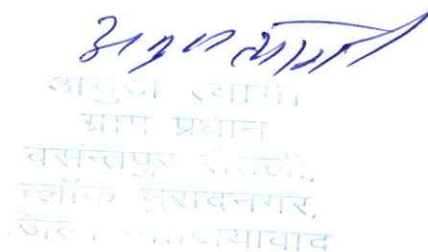 अनुज त्यागी
अनुज त्यागी
ग्राम प्रधान
वसन्तपुर
ब्लॉक मुरादनगर,
जिला गाजियाबाद